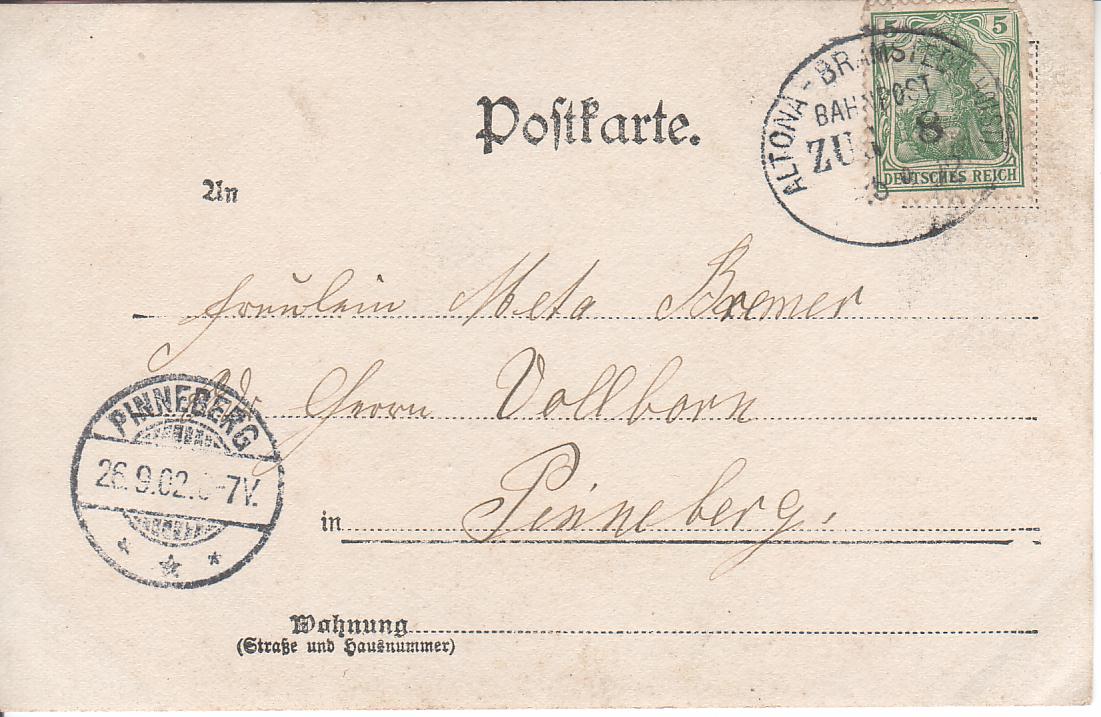 Postkarte.
5 5
DEUTSCHES REICH
ALTONA - BRAMSTEDT
BAHNPOST
ZUG 8
An
Fräulein Meta Bremer
Herrn Vollborn
in Pinneberg.
PINNEBERG
26.9.02. -7V.
Wohnung
(Straße und Hausnummer)